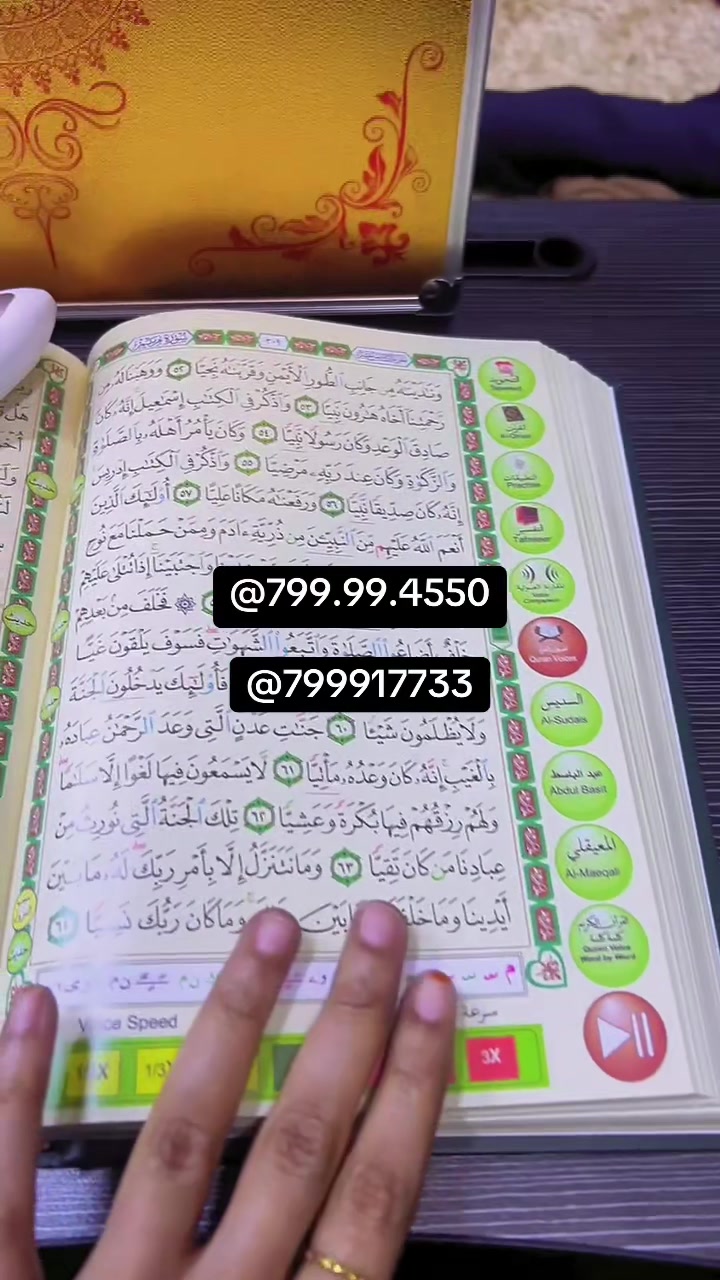 سورة مريم
٣٠٩
وَنَٰدَيْنَٰهُ مِن جَانِبِ ٱلطُّورِ ٱلْأَيْمَنِ وَقَرَّبْنَٰهُ نَجِيًّا ٥٢ وَوَهَبْنَا لَهُۥ مِن
رَّحْمَتِنَآ أَخَاهُ هَٰرُونَ نَبِيًّا ٥٣ وَٱذْكُرْ فِى ٱلْكِتَٰبِ إِسْمَٰعِيلَ إِنَّهُۥ كَانَ
صَادِقَ ٱلْوَعْدِ وَكَانَ رَسُولًا نَّبِيًّا ٥٤ وَكَانَ يَأْمُرُ أَهْلَهُۥ بِٱلصَّلَوٰةِ
وَٱلزَّكَوٰةِ وَكَانَ عِندَ رَبِّهِۦ مَرْضِيًّا ٥٥ وَٱذْكُرْ فِى ٱلْكِتَٰبِ إِدْرِيسَ
إِنَّهُۥ كَانَ صِدِّيقًا نَّبِيًّا ٥٦ وَرَفَعْنَٰهُ مَكَانًا عَلِيًّا ٥٧ أُو۟لَٰٓئِكَ ٱلَّذِينَ
أَنْعَمَ ٱللَّهُ عَلَيْهِم مِّنَ ٱلنَّبِيِّۦنَ مِن ذُرِّيَّةِ ءَادَمَ وَمِمَّنْ حَمَلْنَا مَعَ نُوحٍ
وَٱجْتَبَيْنَآ إِذَا تُتْلَىٰ عَلَيْهِمْ
فَخَلَفَ مِنۢ بَعْدِهِمْ
@799.99.4550
خَلْفٌ أَضَاعُوا۟ ٱلصَّلَوٰةَ وَٱتَّبَعُوا۟ ٱلشَّهَوَٰتِ فَسَوْفَ يَلْقَوْنَ غَيًّا
@799917733
فَأُو۟لَٰٓئِكَ يَدْخُلُونَ ٱلْجَنَّةَ
وَلَا يُظْلَمُونَ شَيْـًٔا ٦٠ جَنَّٰتِ عَدْنٍ ٱلَّتِى وَعَدَ ٱلرَّحْمَٰنُ عِبَادَهُۥ
بِٱلْغَيْبِ إِنَّهُۥ كَانَ وَعْدُهُۥ مَأْتِيًّا ٦١ لَّا يَسْمَعُونَ فِيهَا لَغْوًا إِلَّا سَلَٰمًا
وَلَهُمْ رِزْقُهُمْ فِيهَا بُكْرَةً وَعَشِيًّا ٦٢ تِلْكَ ٱلْجَنَّةُ ٱلَّتِى نُورِثُ مِنْ
عِبَادِنَا مَن كَانَ تَقِيًّا ٦٣ وَمَا نَتَنَزَّلُ إِلَّا بِأَمْرِ رَبِّكَ لَهُۥ مَا بَيْنَ
أَيْدِينَا وَمَا خَلْفَنَا وَمَا كَانَ رَبُّكَ نَسِيًّا ٦٤
التجويد
القرآن
التطبيقات
Practise
التفسير
Tafseer
Quran Voices
السديس
Al-Sudais
عبد الباسط
Abdul Basit
المعيقلي
Al-Maeqali
القرآن الكريم
Quran Voice
Word by Word
حديث
حديث
Voice Speed
سرعة
3X